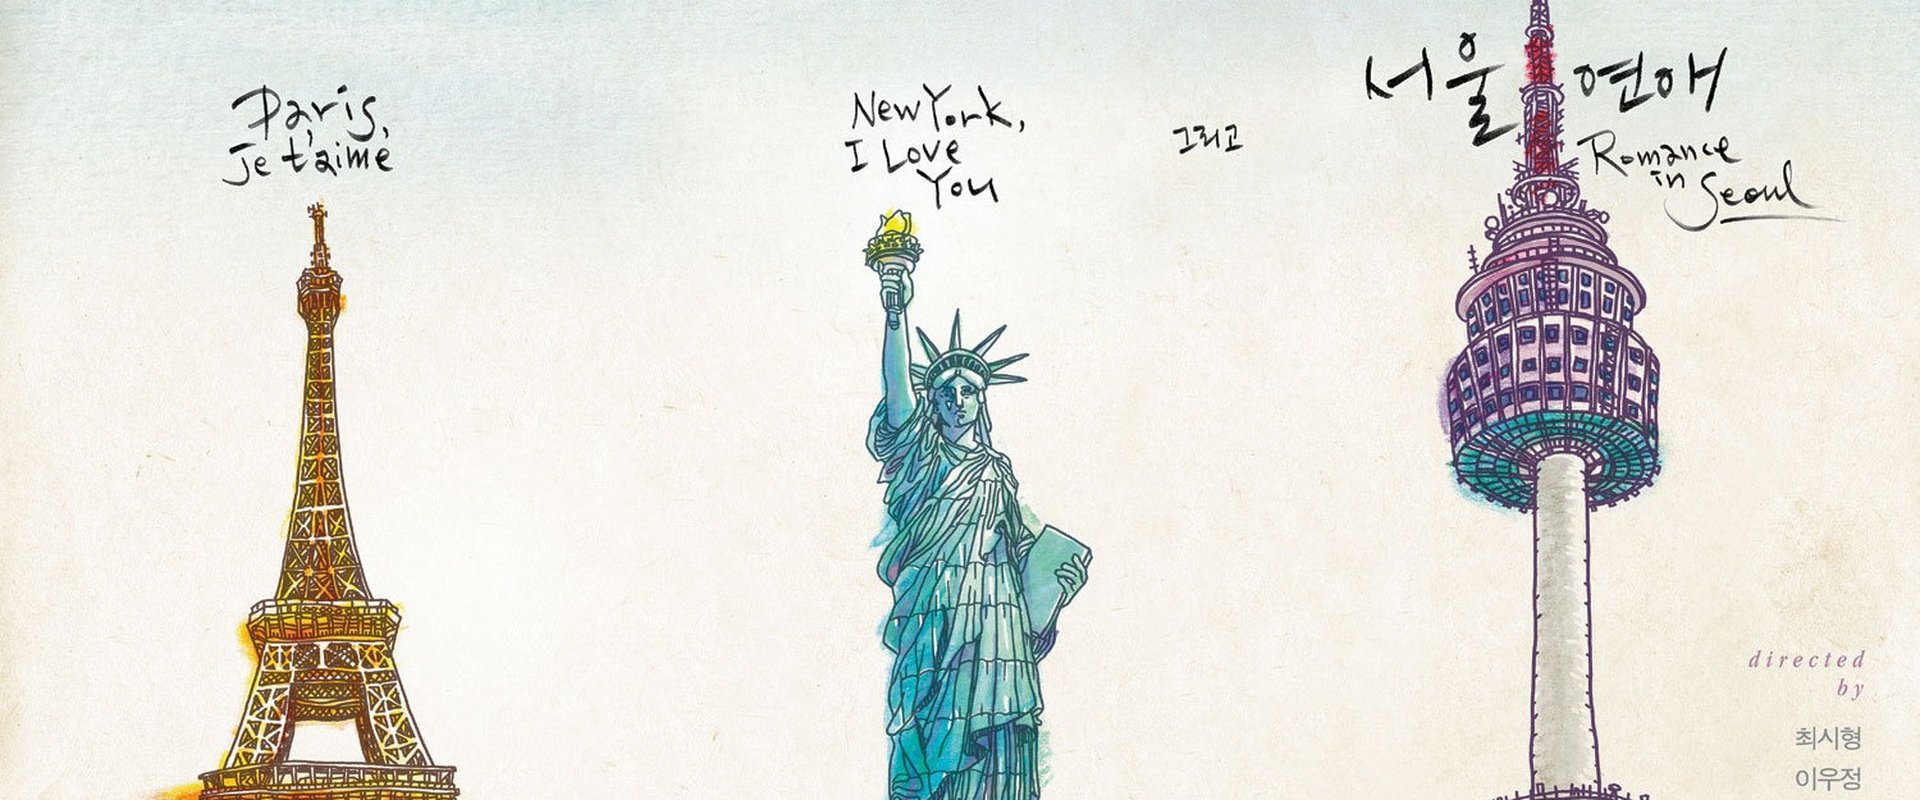 Paris,
je t'aime
New York,
I Love
You
그리고
서울 연애
Romance
in
Seoul
directed
by
최시형
이우정